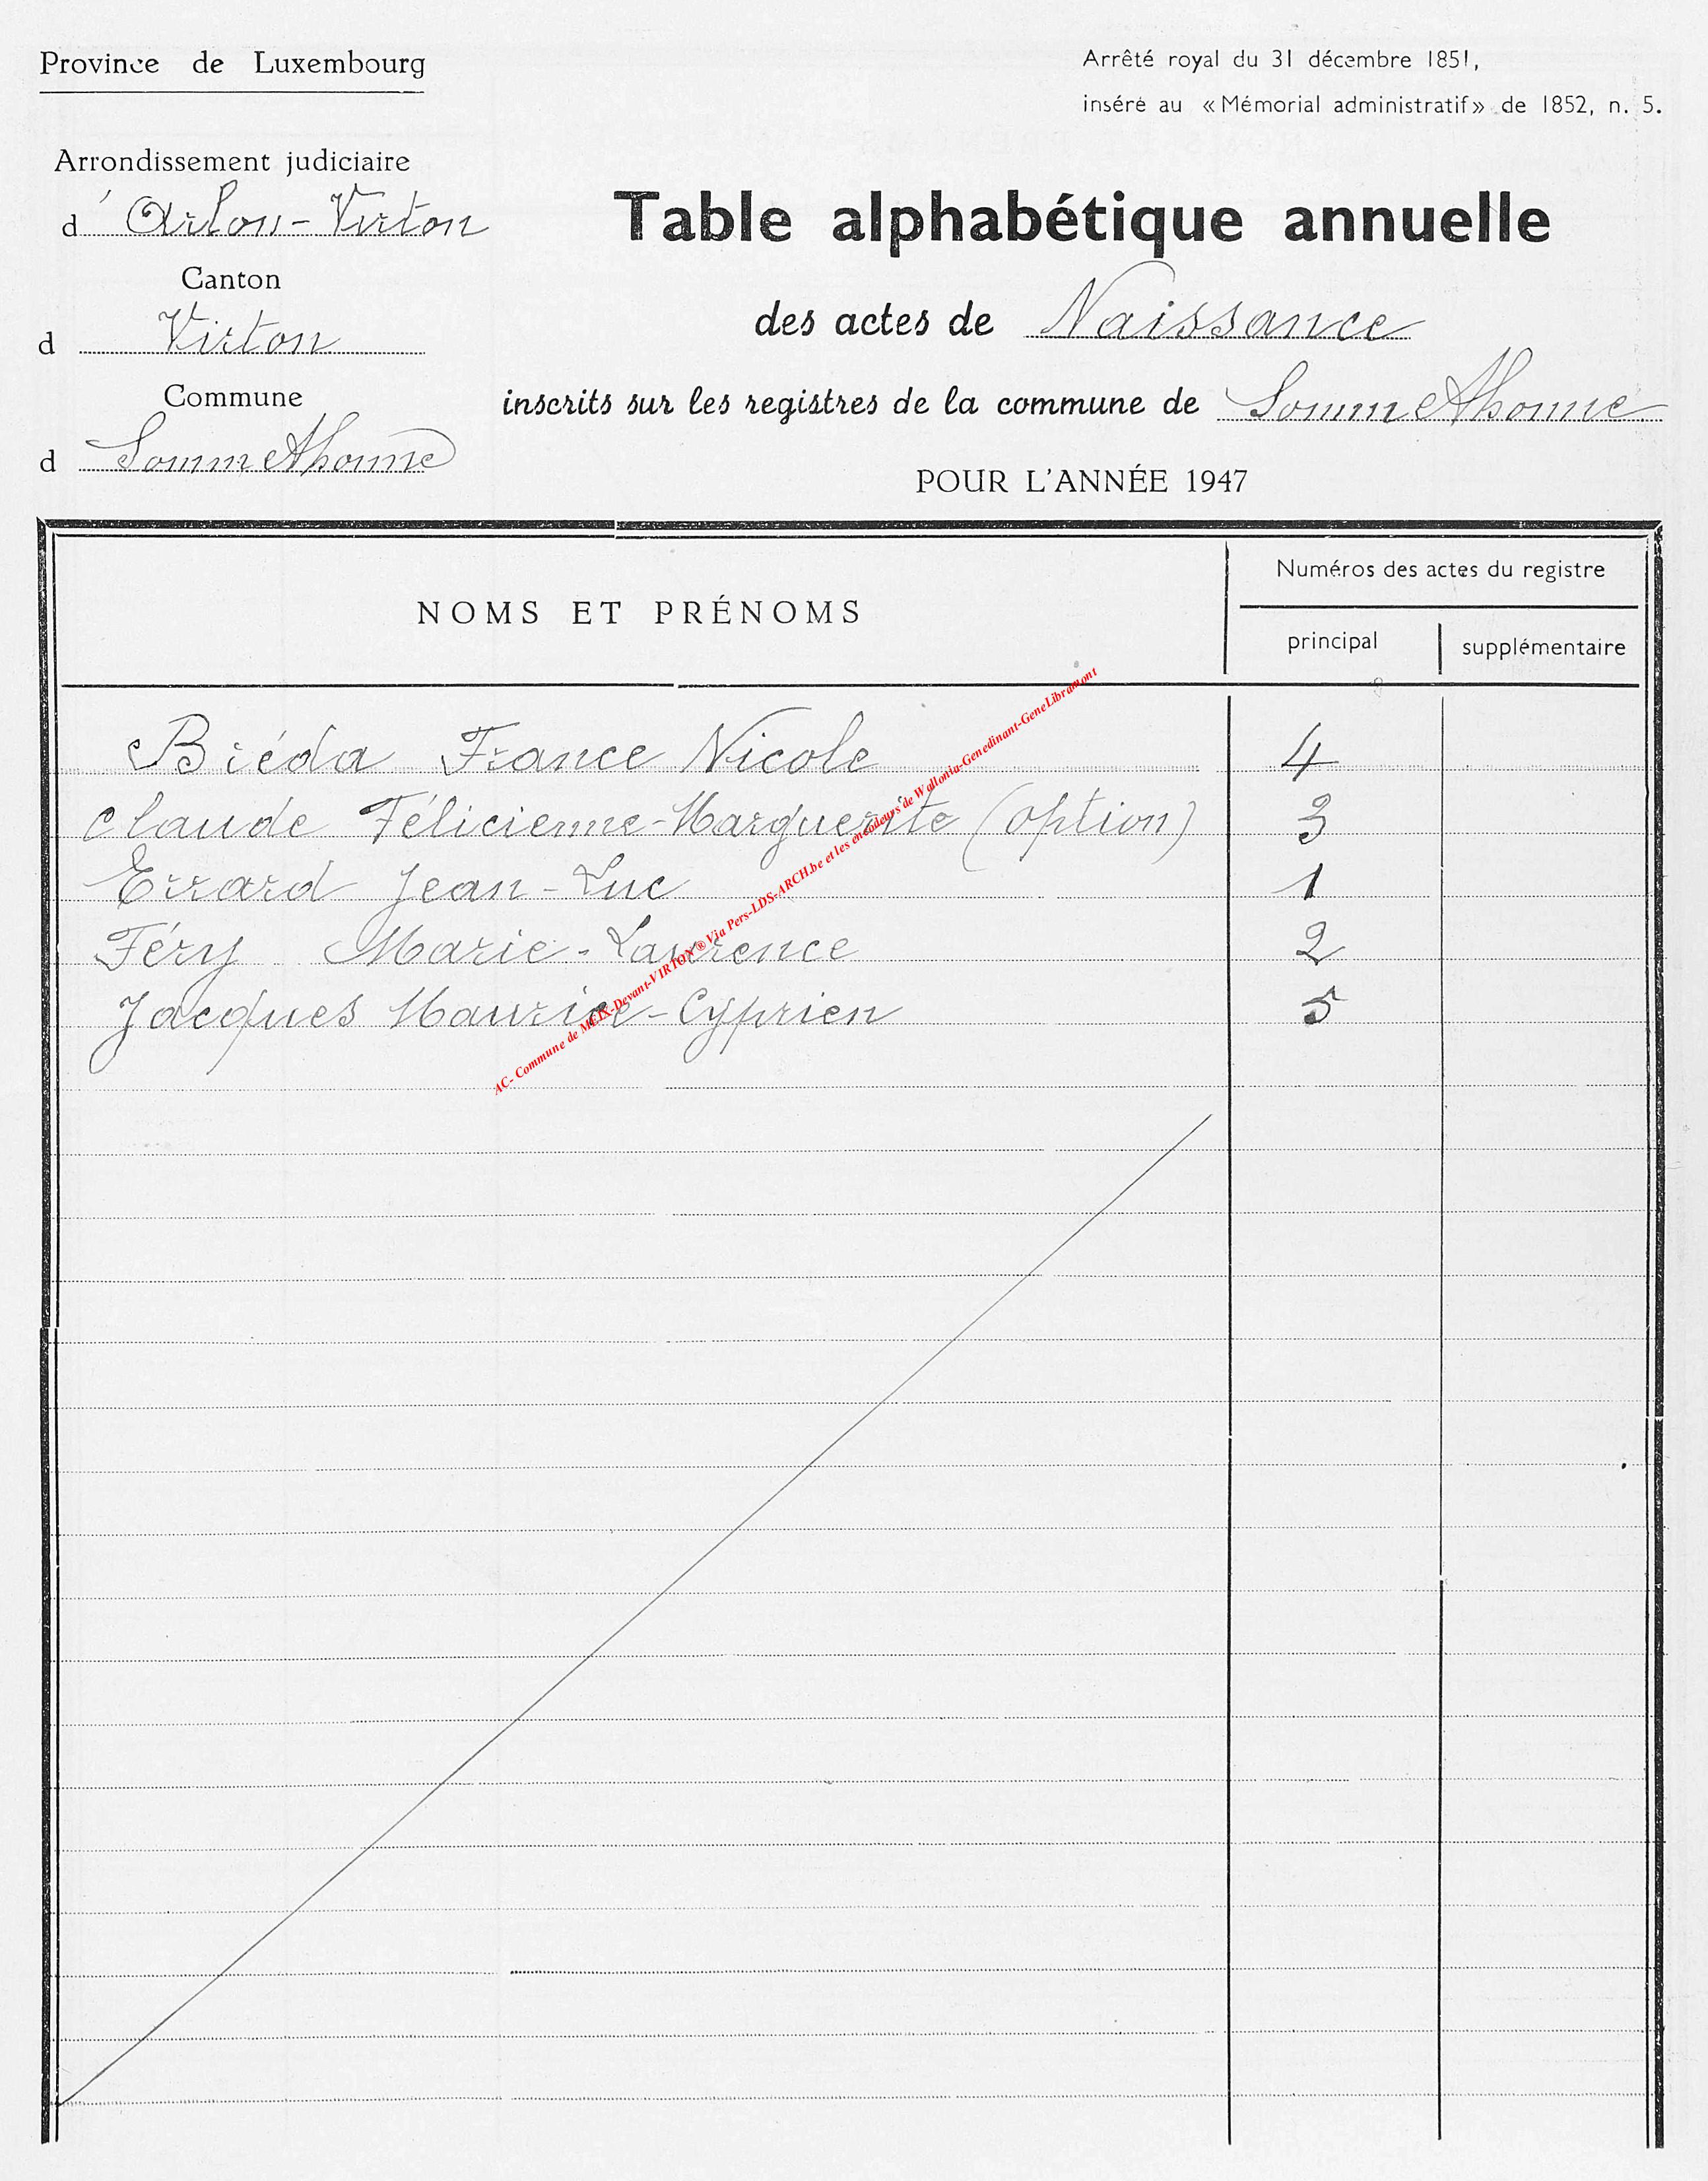 Province de Luxembourg
Arrêté royal du 31 décembre 1851,
inséré au «Mémorial administratif» de 1852, n. 5.
Arrondissement judiciaire
d'Arlon-Virton
Canton
d Virton
Commune
d Sommethonne
Table alphabétique annuelle
des actes de Naissance
inscrits sur les registres de la commune de Sommethonne
POUR L'ANNÉE 1947
NOMS ET PRÉNOMS
Numéros des actes du registre
principal
supplémentaire
Bréda France Nicole 4
Claude Félicienne-Marguerite (option) 3
Errard Jean-Luc 1
Féry Marie-Laurence 2
Jacques Maurice-Cyprien 5
AC- Commune de MEIX-Devant-VIRTON® Via Pers-LDS-ARCH.be et les encodeurs de Wallonia-Genedinant-GeneLibramont